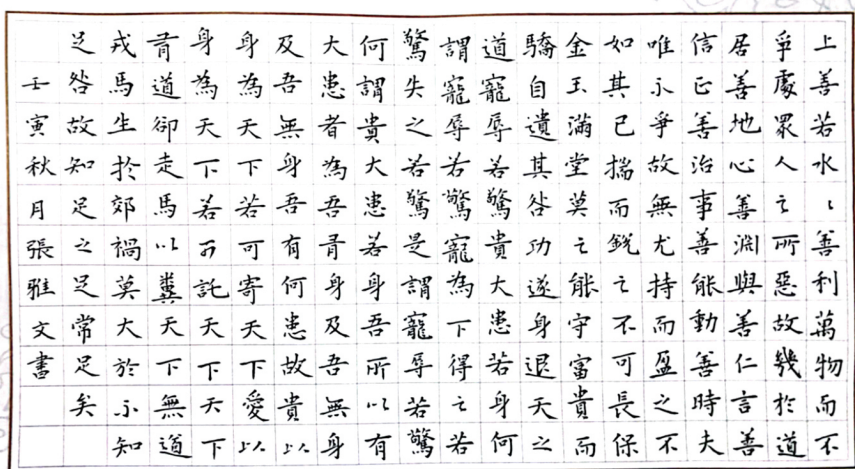 上善若水〻善利萬物而不
爭處眾人之所惡故幾於道
居善地心善淵與善仁言善
信正善治事善能動善時夫
唯不爭故無尤持而盈之不
如其已揣而銳之不可長保
金玉滿堂莫之能守富貴而
驕自遺其咎功遂身退天之
道寵辱若驚貴大患若身何
謂寵辱若驚寵為下得之若
驚失之若驚是謂寵辱若驚
何謂貴大患若身吾所以有
大患者為吾有身及吾無身
及吾無身吾有何患故貴以
身為天下若可寄天下愛以
身為天下若可託天下天下
有道卻走馬以糞天下無道
戎馬生於郊禍莫大於不知
足咎故知足之足常足矣
壬寅秋月張雅文書